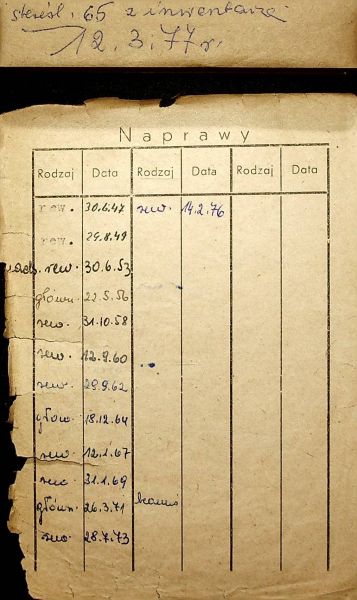 skreśl. 65 z inwentarza
12. 3. 77 r.
Naprawy
Rodzaj Data Rodzaj Data Rodzaj Data
rew. 30.6.47 rew 14.2.76
rew. 29.8.49
rew. 30.6.53
główn. 22.5.56
rew. 31.10.58
rew. 12.9.60
rew. 29.9.62
głów. 18.12.64
rew. 12.1.67
rew. 31.1.69
główn. 26.3.71
rew. 28.7.73